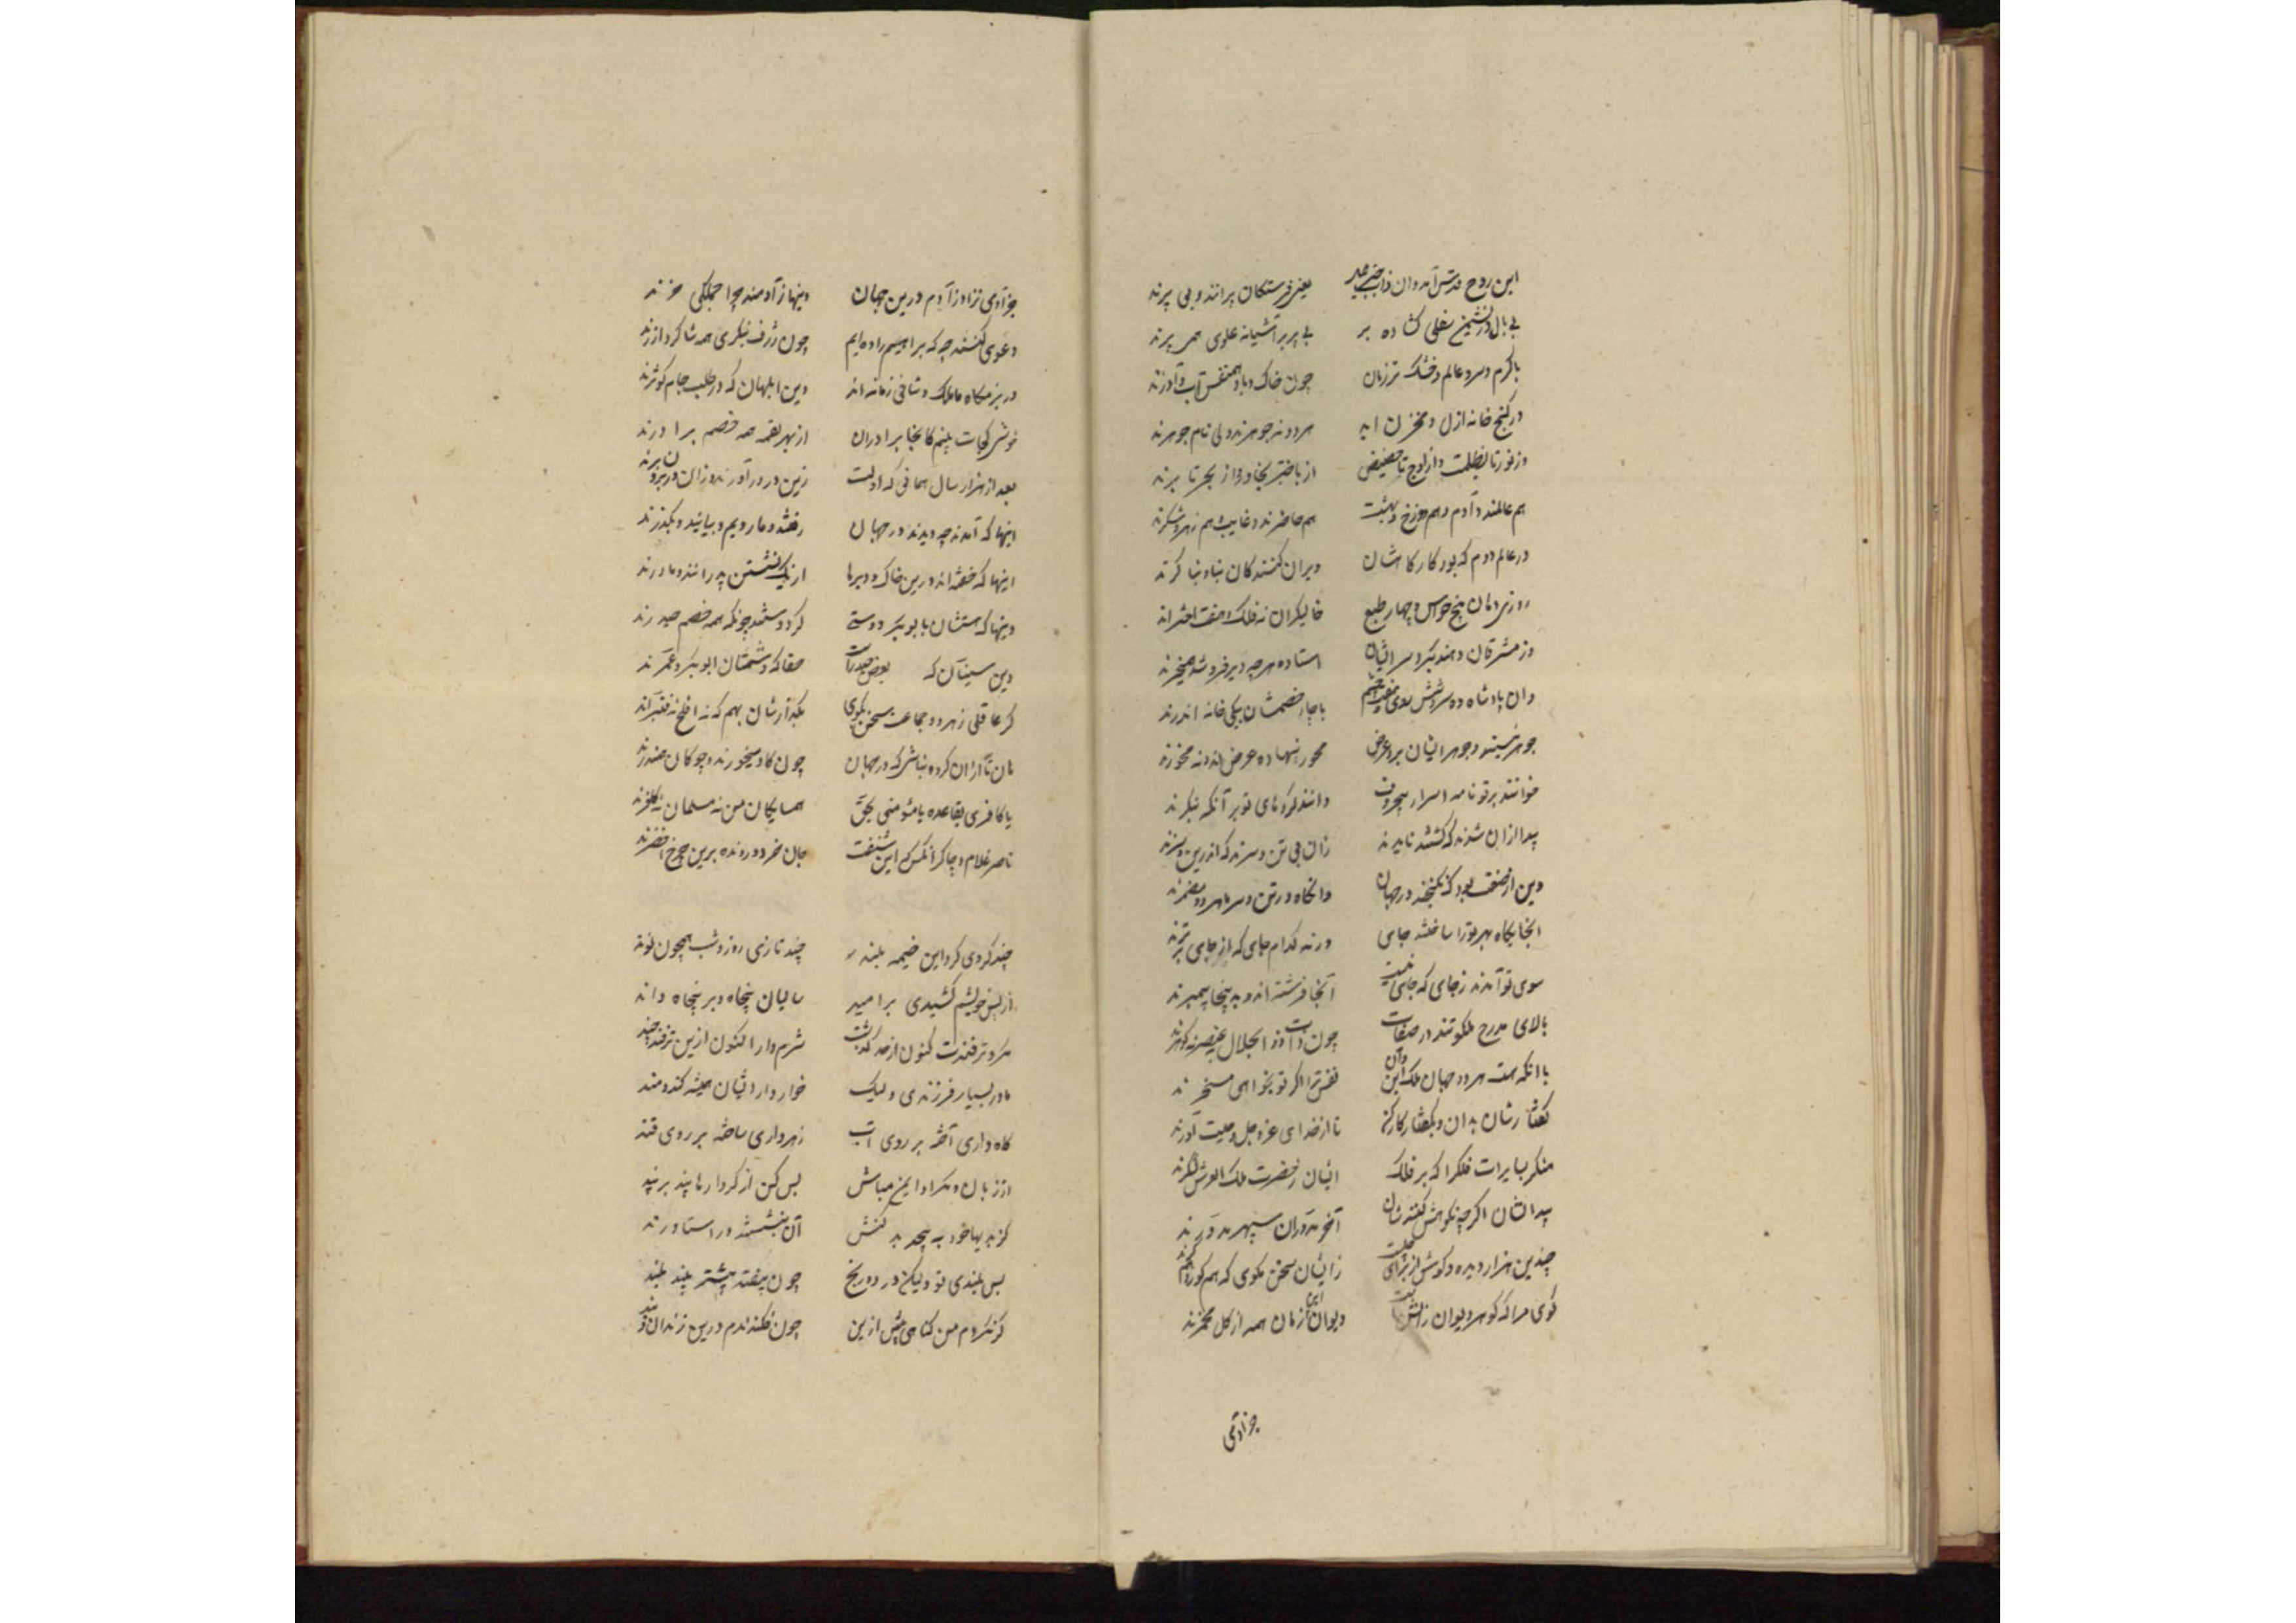 این روح قدس آمد و آن ذات جبرئیل یعنی فرشتگان پرانند و بی پرند
بی بال در نشیمن سفلی گشاده پر بی پر بر آشیانه علوی همی پرند
با گرم و سرد عالم و خشک و تر زمان چون خاک و باد همنفس آب و آذرند
در گنج خانه ازل و مخزن ابد هر دو نه جوهرند ولی نام جوهرند
وز نور تا بظلمت و از اوج تا حضیض از باختر بخاور و از بحر تا برند
هم عالمند و آدم و هم دوزخ و بهشت هم حاضرند و غایب و هم زهر و شکرند
در عالم دوم که بود کارگاهشان ویران کنندگان بنا و بنا گرند
روزی دهان پنج حواس و چهار طبع خالیگران نه فلک و هفت اخترند
وز مشرقان و هند بگرد سرایشان استاده هرچه دیر فروشد همیخرند
وان پادشاه ده سر و شش روی با چار خصمشان بیکی خانه اندرند
جوهر نیند و جوهر ایشان برد عرض محور نهاده عرض اند و نه محورند
خوانند بر تو نامه اسرار بی حروف دانند کردهای تو بی آنکه بنگرند
پیدا از آن شدند که گشتند ناپدید زان بی تن و سرند که اندر تن و سرند
وین از صفت بود که نگنجند در جهان وانگاه در تن و سر ما هر دو مضمرند
اینجایگاه بهر تو را ساختند جای ورنه کدام جای که از جای برترند
سوی تو آمدند ز جای که جای نیست آنجا فرشته اند و بدینجا پیمبرند
بالای مدرج ملکوتند در صفات چون ذات ذوالجلال نه عنصر نه گوهرند
با آنکه هست هر دو جهان ملک این و آن نفس ترا اگر تو بخواهی مسخرند
گفتارشان بدان و بگفتار کار کن تا از خدای عز و جل وحیت آورند
منگر بسایرات فلک را که بر فلک ایشان ز حضرت ملک العرش لشکرند
پیدایشان اگر چه نکوهش کنندشان آخر مدوران سپهر مدورند
چندین هزار دیده و گوش از برای چیست زایشان سخن مگوی که هم کور و هم کرند
گوی مرا که گوهر دیوان ز آتش است دیوان این زمان همه از گل مخمرند
جز آدمی
جز آدمی نزاد ز آدم درین جهان وینها ز آدمند چرا جملگی خرند
دعوی کنند چه که براهیم زاده ایم چون ژرف بنگری همه شاگرد آزرند
در بزمگاه مالک و شافی زمانه اند وین ابلهان که در طلب جام کوثرند
خویشی کجات بینم کانجا برادران از بهر لقمه همه خصم برادرند
بعد از هزار سال همانی که اولت زین در درآورند و زان در برون برند
اینها که آمدند چه دیدند در جهان رفتند و ما رویم و بیایند و بگذرند
اینها که خفته اند درین خاک و دیرها از یک نشستن پدرانند و مادرند
وینها که هستشان بابوبکر دوستی گر دوستند چونکه همه خصم حیدرند
وین سنیان که بغض حیدرست حقا که دشمنان ابوبکر و عمرند
گر عاقلی ز هر دو جماعت سخن مگوی بگذارشان بهم که نه افلح نه قنبرند
هان تا از آن گروه نباشی که در جهان چون گاو میخورند و چو گرگان همیدرند
یا کافری بقاعده یا مؤمنی بحق همسایگان من نه مسلمان نه کافرند
ناصر غلام و چاکر آنکس که این بگفت جان خرد رونده برین چرخ اخضرند
چند گردی گرد این خیمه بلند چند تازی روز و شب همچون نوند
از پس خویشم کشیدی بر امید سالیان پنجاه و بر پنجاه و اند
مکر و ترفندت کنون از حد گذشت شرم دار اکنون ازین ترفند چند
مادر بسیار فرزندی ولیک خوار دار ایشان همیشه کند و مند
کاه داری آخته بر روی آب زهر داری ساخته بر روی قند
از زیان و مکر او ایمن مباش بس کن از کردارها پند برپند
کز بدیها خود به پیچد بد کنش آن نبشتند در استا و زند
بس بلندی تو ولیکن در ده رنج چون بیفتد پیشتر بیند بلند
گر نکردم من گناهی پیش ازین چون فکندندم درین زندان و بند